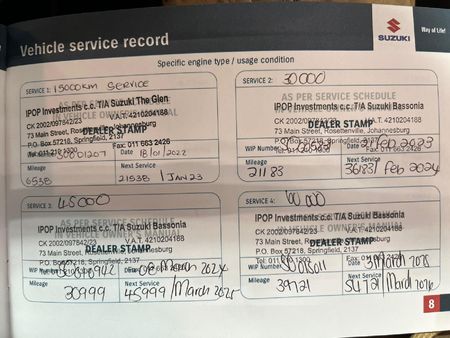 Vehicle service record
SUZUKI
Way of Life!
Specific engine type / usage condition
SERVICE 1: 15000km SERVICE
AS PER SERVICE SCHEDULE
IN VEHICLE OWNER'S MANUAL
IPOP Investments c.c. T/A Suzuki The Glen
CK 2002/097542/23 V.A.T. 4210204188
73 Main Street, Rosettenville, Johannesburg
DEALER STAMP
P.O. Box 57218, Springfield, 2137
Fax: 011 663 2426
Date 18/01/2022
Mileage Next Service
6538 21538 / JAN 23
SERVICE 2: 30000
AS PER SERVICE SCHEDULE
IN VEHICLE OWNER'S MANUAL
IPOP Investments c.c. T/A Suzuki Bassonia
CK 2002/097542/23 V.A.T. 4210204188
73 Main Street, Rosettenville, Johannesburg
DEALER STAMP
P.O. Box 57218, Springfield, 2137
WIP Number Date Feb 2023
Mileage Next Service
21183 36183 / Feb 2024
SERVICE 3: 45000
AS PER SERVICE SCHEDULE
IN VEHICLE OWNER'S MANUAL
IPOP Investments c.c. T/A Suzuki Bassonia
CK 2002/097542/23 V.A.T. 4210204188
73 Main Street, Rosettenville, Johannesburg
DEALER STAMP
P.O. Box 57218, Springfield, 2137
WIP Number Date March 2024
Mileage Next Service
30999 45999 / March 2025
SERVICE 4: 60 000
AS PER SERVICE SCHEDULE
IN VEHICLE OWNER'S MANUAL
IPOP Investments c.c. T/A Suzuki Bassonia
CK 2002/097542/23 V.A.T. 4210204188
73 Main Street, Rosettenville, Johannesburg
DEALER STAMP
P.O. Box 57218, Springfield, 2137
WIP Number Date March 2025
Mileage Next Service
39721 54721 / March 2026
8